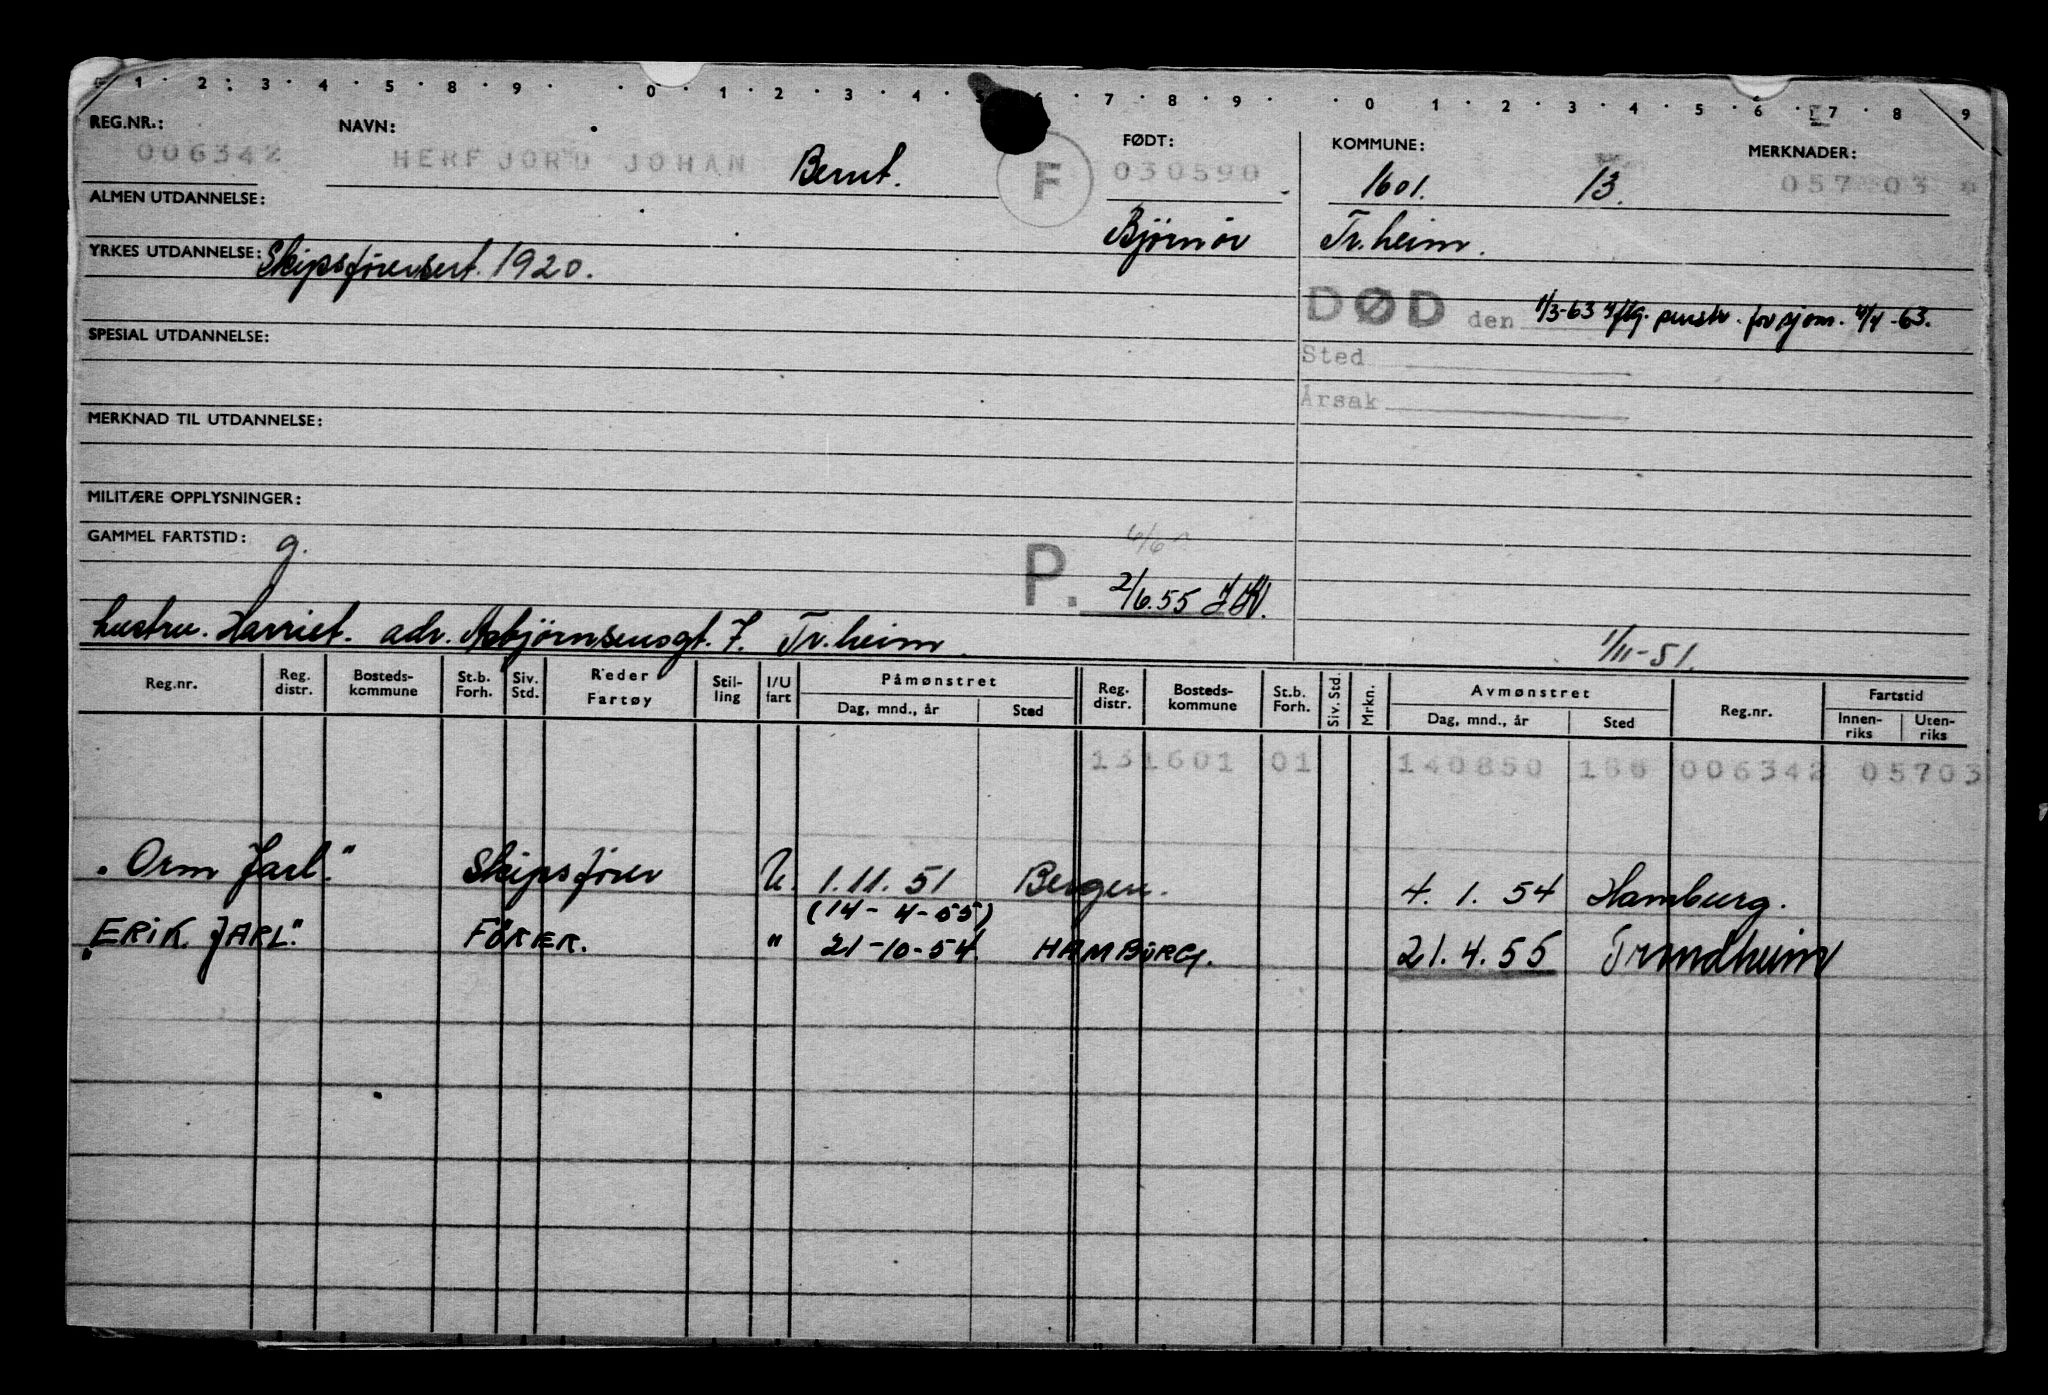 1 · 2 · 3 · 4 · 5 · 8 · 9 · · 0 · 1 · 2 · 3 · 4 · 5 · 6 · 7 · 8 · 9 · · 0 · 1 · 2 · 3 · 4 · 5 · 6 · 7 · 8 · 9
REG.NR.: NAVN: FØDT: KOMMUNE: MERKNADER:
006342 HERFJORD JOHAN Bernt. F 030590 1601. 13. 057 03
ALMEN UTDANNELSE:
Bjørnør Tr.heim.
YRKES UTDANNELSE: Skipsførersert. 1920.
DØD den 1/3-63 iflg. penstr. for sjøm. 4/4-63.
SPESIAL UTDANNELSE:
Sted
Årsak
MERKNAD TIL UTDANNELSE:
MILITÆRE OPPLYSNINGER:
GAMMEL FARTSTID: g.
P. 2/6.55
hustru. Harriet. adr. Asbjørnsensgt. 7. Tr.heim.
1/11-51.
Reg.nr. Reg. distr. Bosteds-kommune St.b. Forh. Siv. Std. Reder Fartøy Stil-ling I/U fart Påmønstret Dag, mnd., år Sted Reg. distr. Bosteds-kommune St.b. Forh. Siv. Std. Mrkn. Avmønstret Dag, mnd., år Sted Reg.nr. Fartstid Innen-riks Uten-riks
131601 01 140850 166 006342 05703
"Orm Jarl." Skipsfører U. 1.11.51 Bergen. 4.1.54 Hamburg.
(14-4-55)
"ERIK JARL." FÖRER. " 21-10-54. HAMBURG. 21.4.55 Trondheim